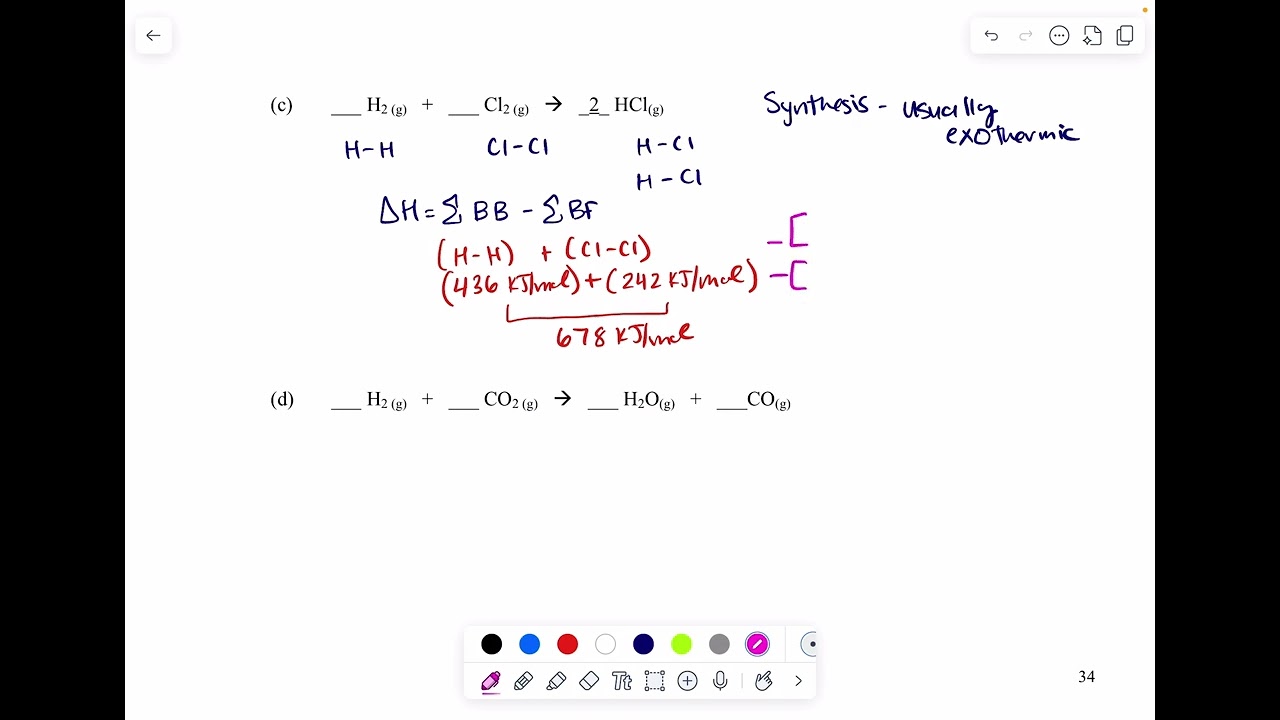 (c) ___ H2 (g) + ___ Cl2 (g) → _2_ HCl(g)
Synthesis - usually
exothermic
H-H Cl-Cl H-Cl
H-Cl
ΔH = Σ BB - Σ BF
(H-H) + (Cl-Cl) -[
(436 KJ/mol) + (242 KJ/mol) -[
678 KJ/mol
(d) ___ H2 (g) + ___ CO2 (g) → ___ H2O(g) + ___CO(g)
Tt
34